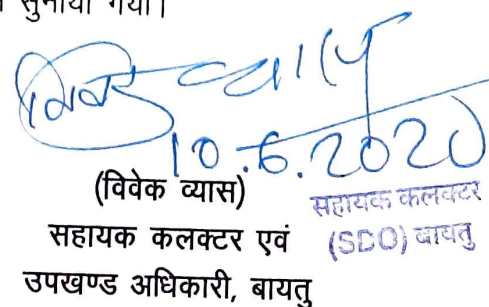 सुनाया गया।
विवेक व्यास
10.6.2020
(विवेक व्यास)
सहायक कलक्टर एवं
उपखण्ड अधिकारी, बायतु
सहायक कलक्टर
(SDO) बायतु